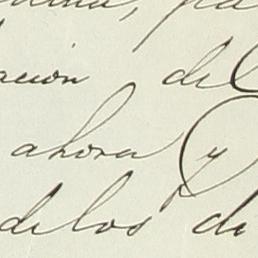 ación del
ahora y
de los di